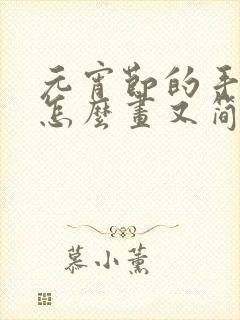 元宵節的手
怎麼畫又简
慕小薰